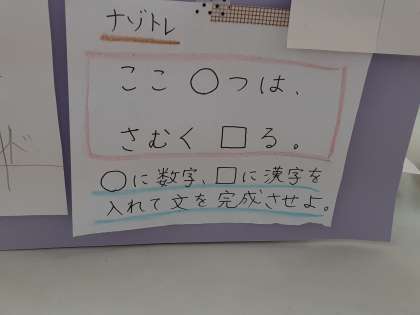 ナゾトレ
ここ○つは、
さむく□る。
○に数字、□に漢字を
入れて文を完成させよ。